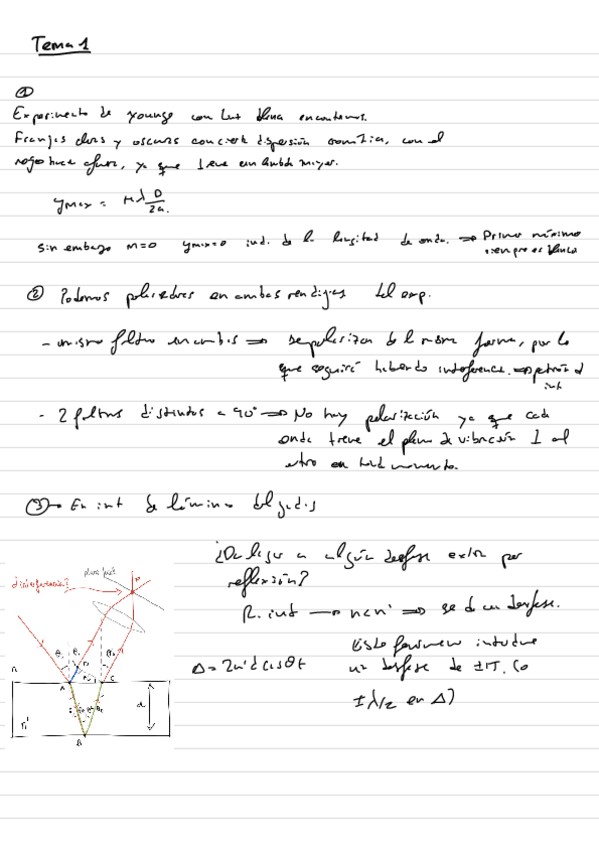 Tema 1
①
Experimento de younge con luz blanca encontramos.
Franjas claras y oscuras con cierta dispersión cromática, con el
rojo hacia afuera, ya que tiene un lambda mayor.
ymax = mλ D/2a.
sin embargo m=0 ymax=0 ind. de la longitud de onda. ⇒ Primer máximo
siempre es blanco
② Podemos polarizadores en ambas rendijas del exp.
- mismo filtro en ambas ⇒ se polarizan de la misma forma, por lo
que seguirá habiendo interferencia. ⇒ patrón d
int
- 2 filtros distintos a 90° ⇒ No hay polarización ya que cada
onda tiene el plano de vibración ⊥ al
otro en todo momento.
③→ En int de láminas delgadas
¿Da lugar a algún desfase extra por
reflexión?
plano focal
¿interferencia?
P
R. int → n<n' ⇒ se da un desfase.
Este fenómeno introduce
Δ = 2n'd cosθt
un desfase de ±π. (o
±λ/2 en Δ)
n
A
C
d
n'
B